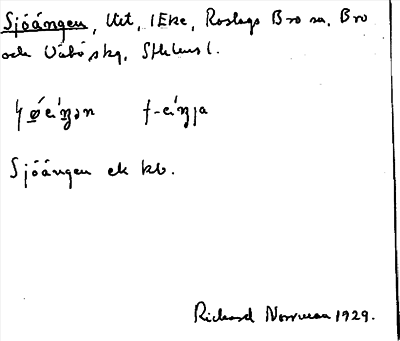 Sjöängen, Utt, 1 Eke, Roslags Bro sn, Bro
och Väbö skg, Sthlms l.
Sjöängen ek kb.
Richard Norrman 1929.